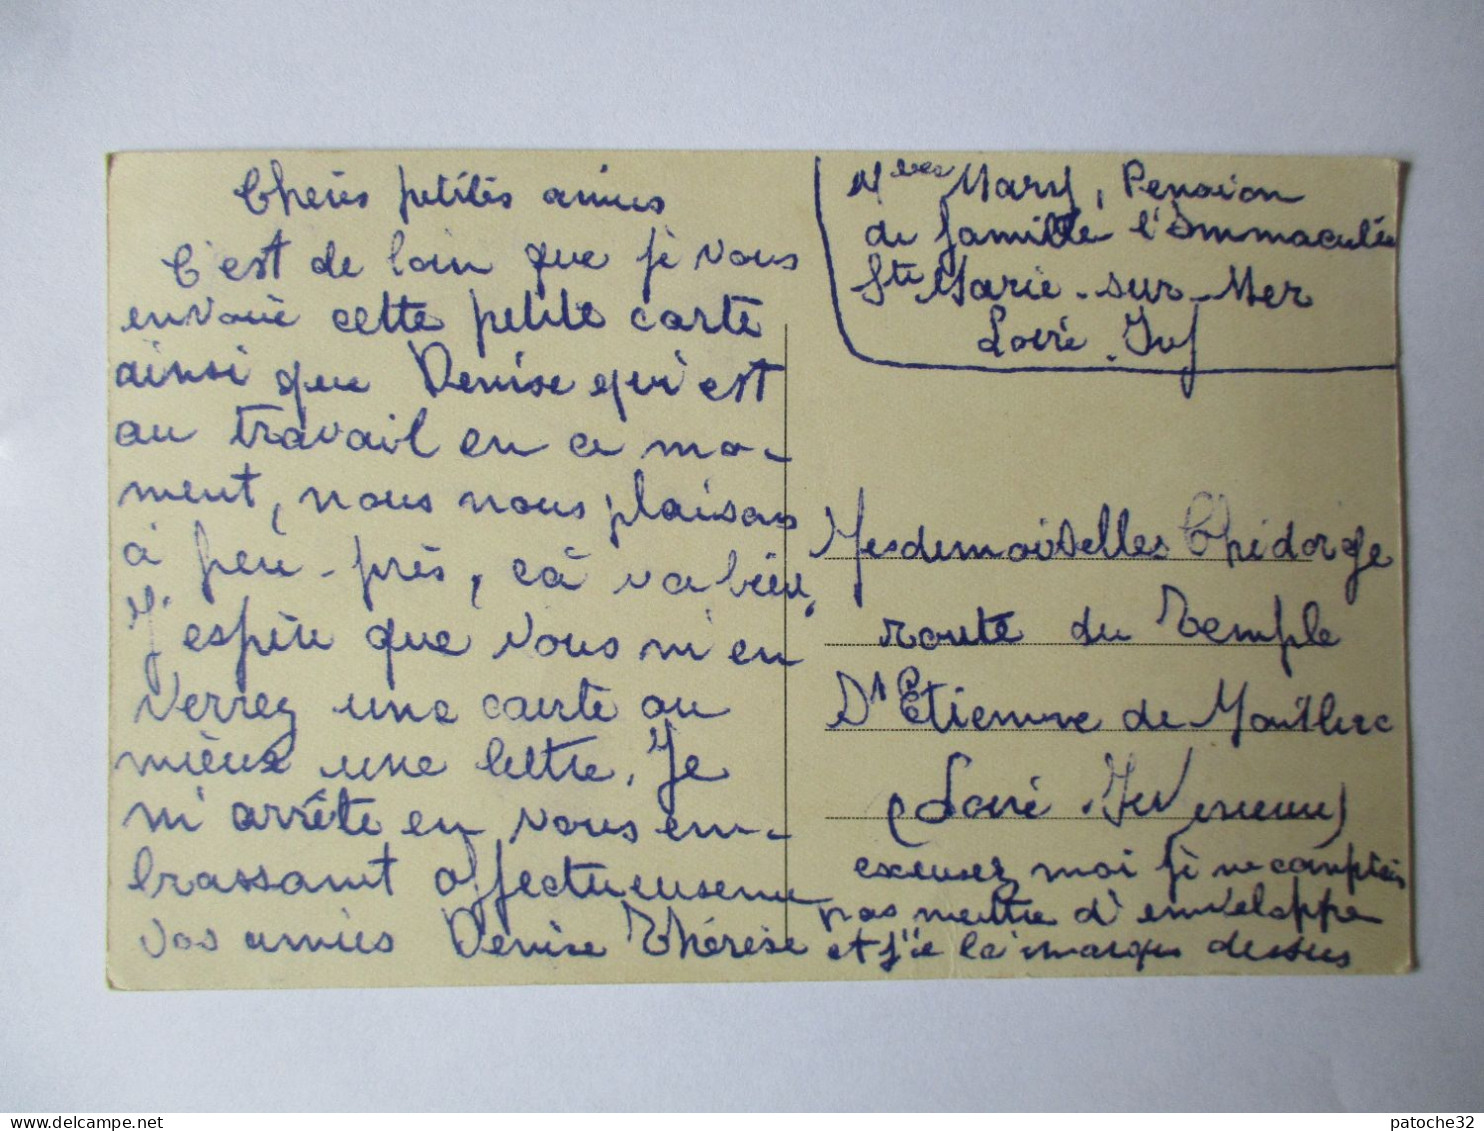 Chères petites amies
C'est de loin que je vous
envoie cette petite carte
ainsi que Denise qui est
au travail en ce mo-
ment, nous nous plaisons
à peu-près, çà va bien,
J'espère que vous m'en
verrez une carte ou
mieux une lettre. Je
m'arrête en vous em-
brassant affectueuseme
vos amies Denise Thérèse
Melles Mary, Pension
de famille l'Immaculée
Ste Marie-sur-Mer
Loire-Inf
Mesdemoiselles Chidorge
route du Temple
St Etienne de Montluc
(Loire-Inférieure)
excusez moi je ne comptais
pas mettre d'enveloppe
et j'ai la marque dessus
patoche32